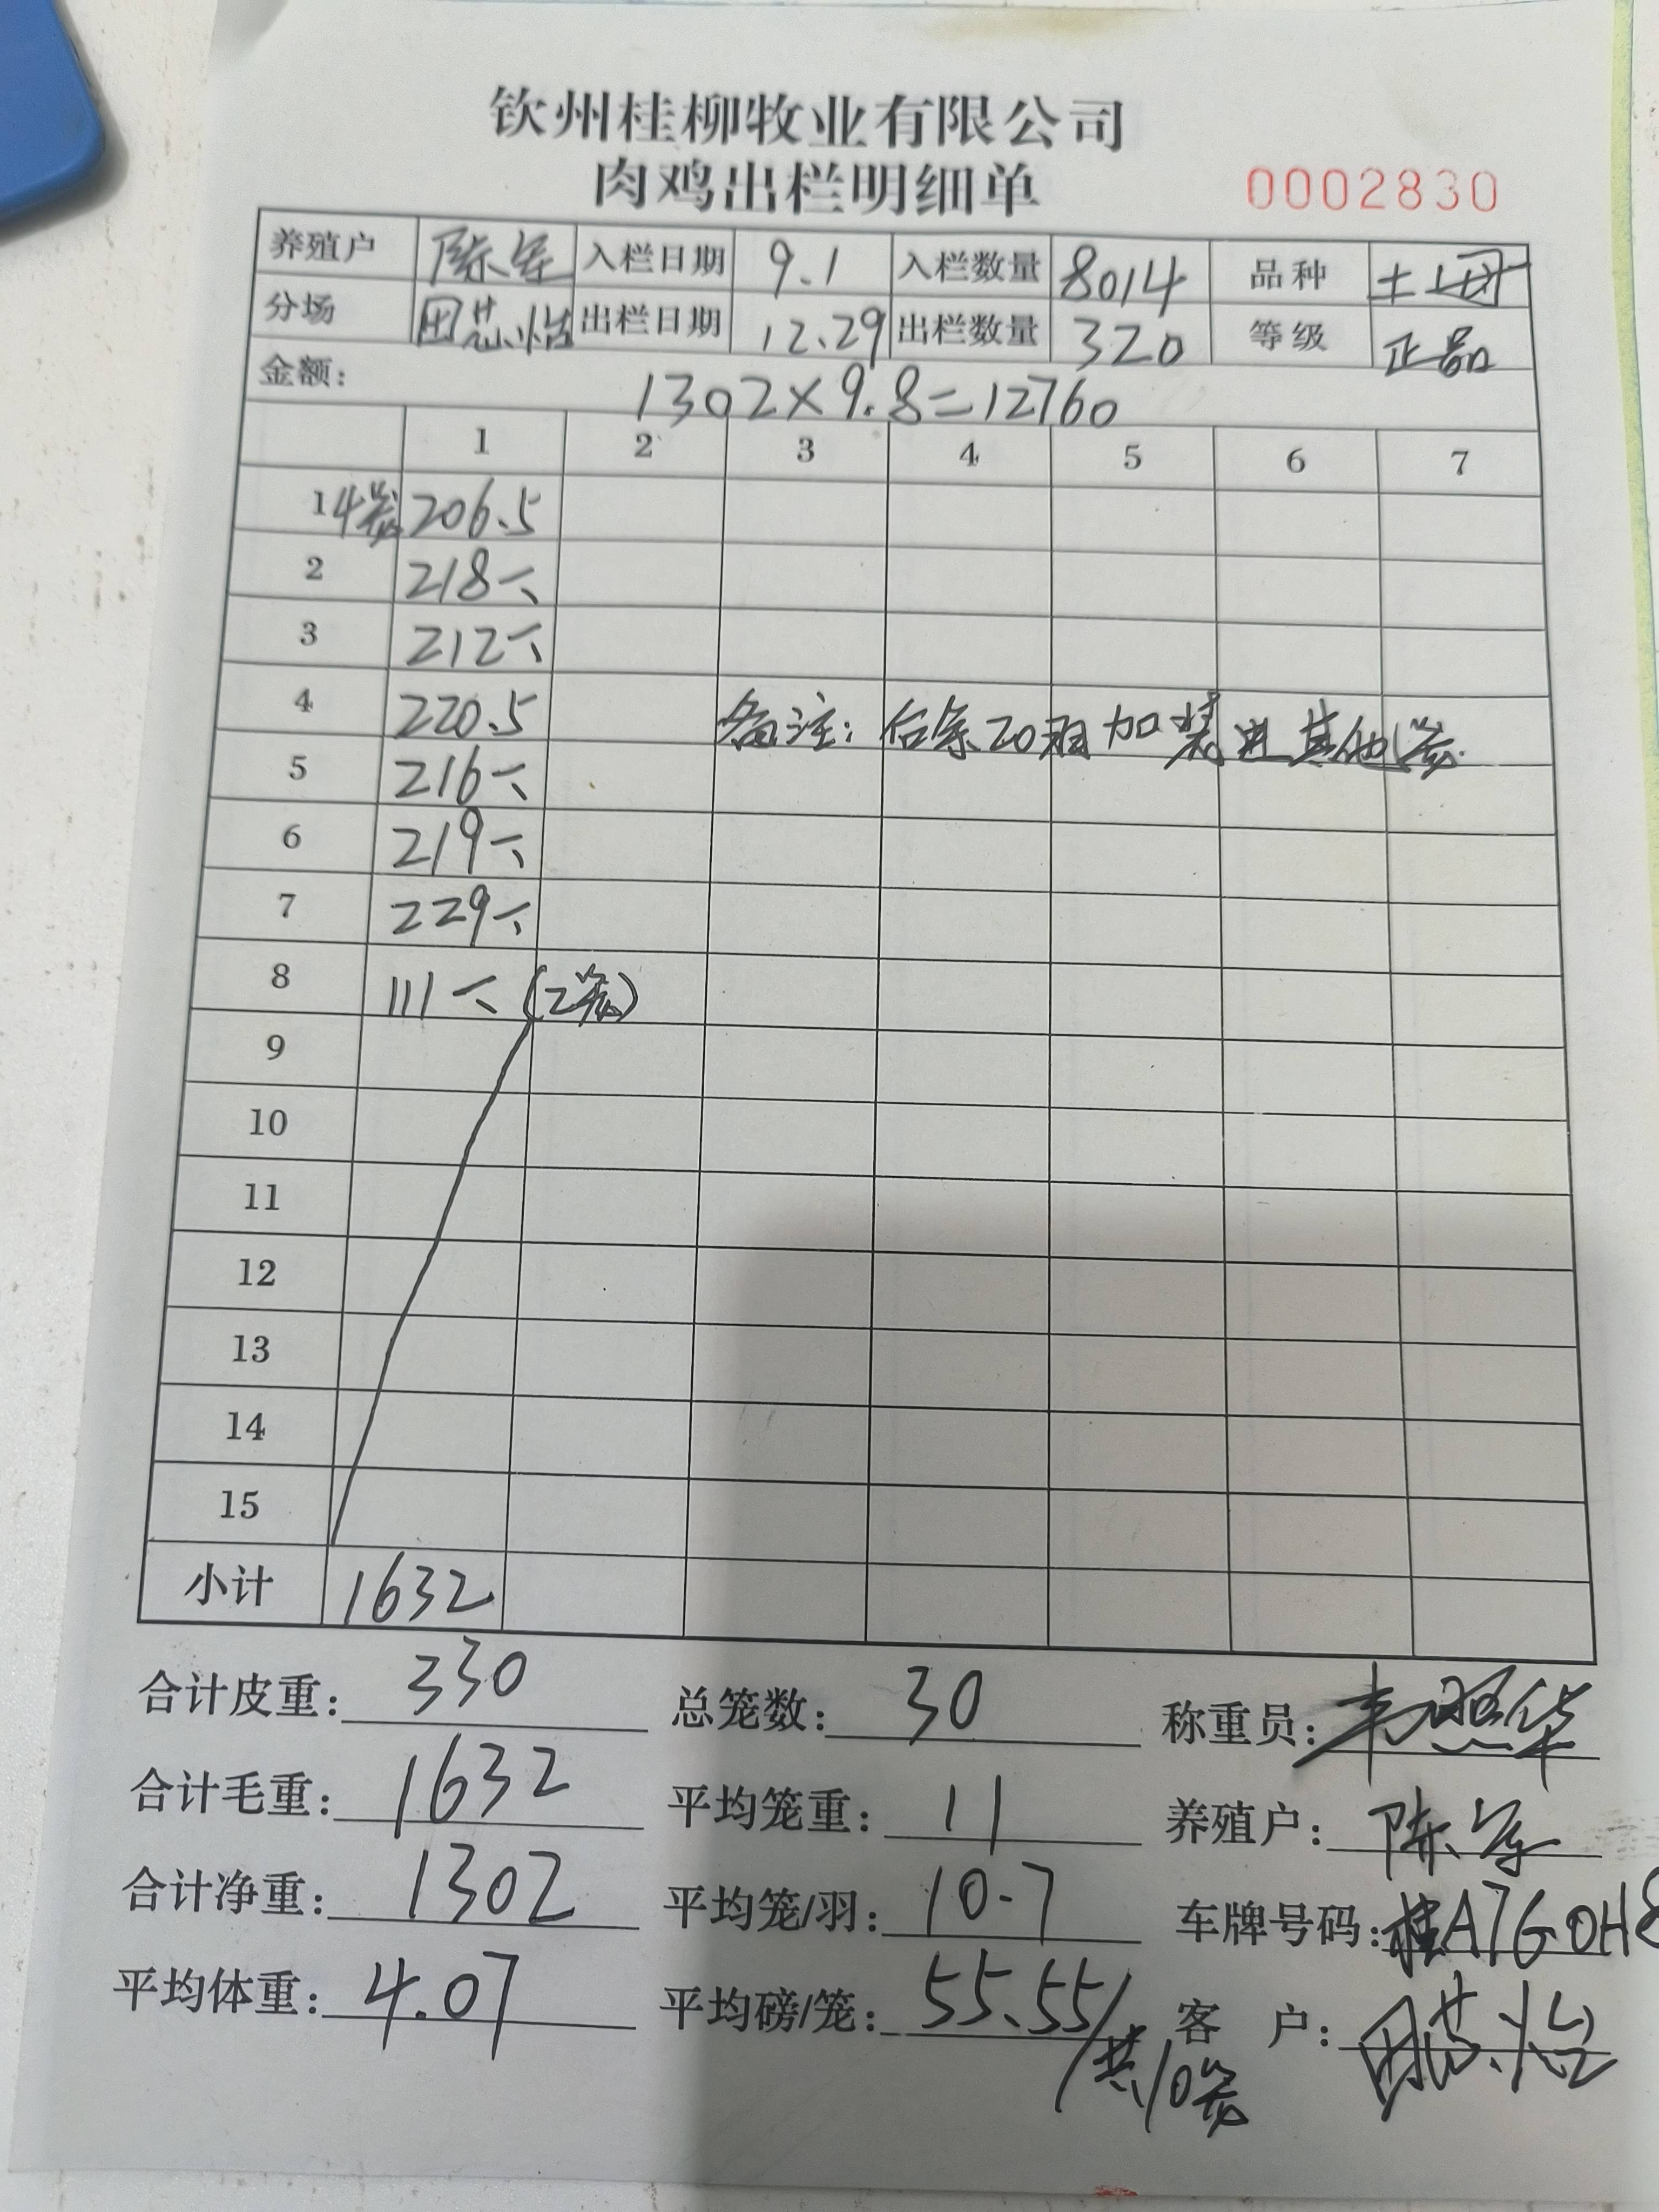 钦州桂柳牧业有限公司
肉鸡出栏明细单
0002830
养殖户 陈军 入栏日期 9.1 入栏数量 8014 品种 土
分场 田芯怡 出栏日期 12.29 出栏数量 320 等级 正品
金额: 1302×9.8=12760
1 2 3 4 5 6 7
1 4笼 206.5
2 218
3 212
4 220.5
备注: 余20羽加装进其他笼.
5 216
6 219
7 229
8 111 (2笼)
9
10
11
12
13
14
15
小计 1632
合计皮重: 330 总笼数: 30 称重员: 韦照华
合计毛重: 1632 平均笼重: 11 养殖户: 陈军
合计净重: 1302 平均笼/羽: 10.7 车牌号码: 桂A7G0H8
平均体重: 4.07 平均磅/笼: 55.55 客 户: 田芯怡
共10笼